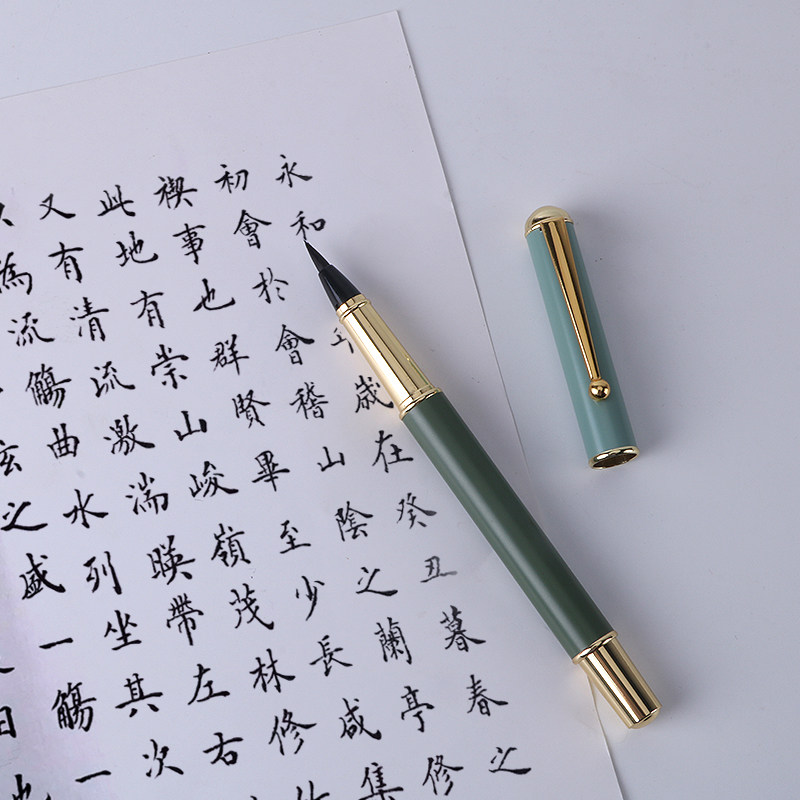 永和歲在癸丑暮春之
初會於會稽山陰之蘭亭修
禊事也群賢畢至少長咸集
此地有崇山峻嶺茂林修
又有清流激湍暎帶左右
為流觴曲水列坐其次
弦之盛一觴一
日也